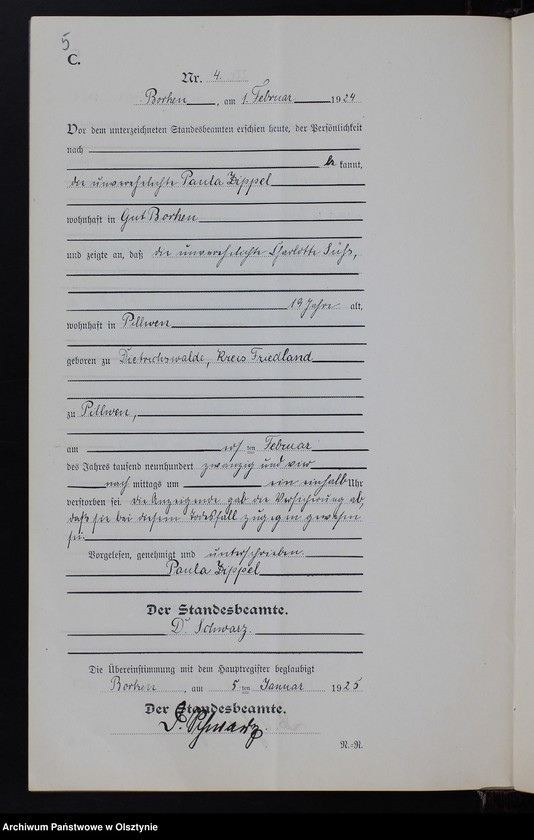 5
C.
Nr. 4.
Borken, am 1. Februar 1924
Vor dem unterzeichneten Standesbeamten erschien heute, der Persönlichkeit
nach
be kannt,
die unverehelichte Paula Zippel
wohnhaft in Gut Borken
und zeigte an, daß die unverehelichte Charlotte Süß,
19 Jahre alt,
wohnhaft in Pillwen
geboren zu Dietrichswalde, Kreis Friedland
zu Pillwen,
am ersten Februar
des Jahres tausend neunhundert zwanzig und vier
nach mittags um ein einhalb Uhr
verstorben sei. die Anzeigende gab die Versicherung ab,
daß sie bei diesem Todesfall zugegen gewesen
sei.
Vorgelesen, genehmigt und unterschrieben.
Paula Zippel
Der Standesbeamte.
D. Schwarz.
Die Übereinstimmung mit dem Hauptregister beglaubigt
Borken, am 5 ten Januar 1925
Der Standesbeamte.
Schwarz.
N.-R.
Archiwum Państwowe w Olsztynie